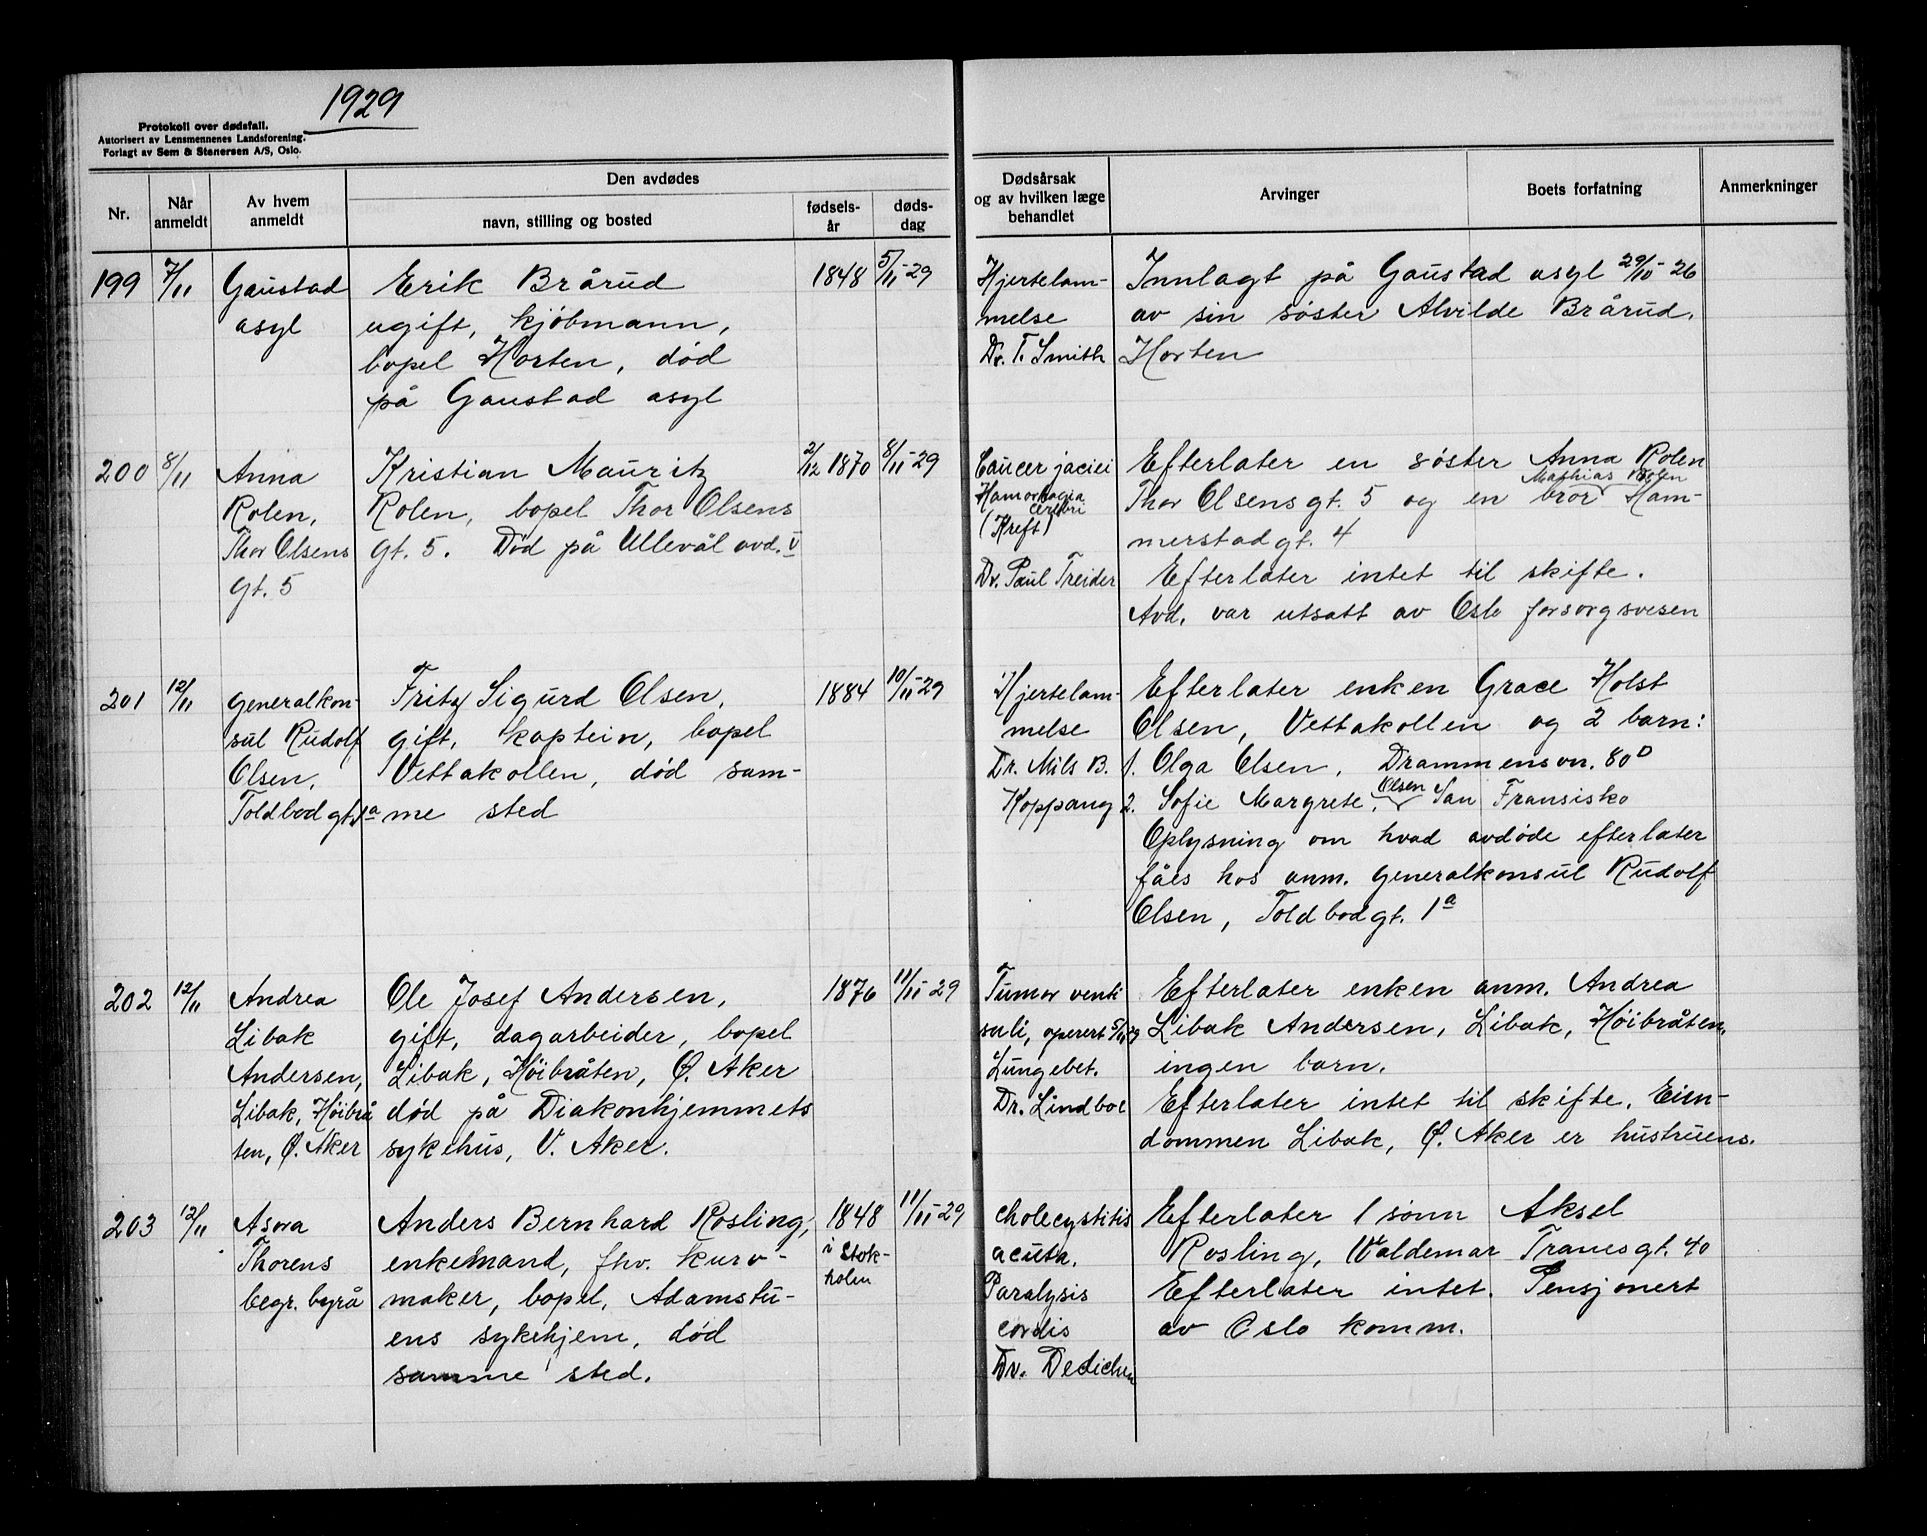 1929
Protokoll over dødsfall.
Autorisert av Lensmennenes Landsforening.
Forlagt av Sem & Stenersen A/S, Oslo.
Nr.
Når anmeldt
Av hvem anmeldt
Den avdødes
navn, stilling og bosted
fødsels-år
døds-dag
Dødsårsak
og av hvilken læge
behandlet
Arvinger
Boets forfatning
Anmerkninger
199
7/11
Gaustad
asyl
Erik Brårud
ugift, kjöbmann,
bopel Horten, död
på Gaustad asyl
1848
5/11-29
Hjertelam-
melse
Dr. T. Smith
Innlagt på Gaustad asyl 29/10-26
av sin söster Alvilde Brårud.
Horten
200
8/11
Anna
Rolen,
Thor Olsens
gt. 5
Kristian Mauritz
Rolen, bopel Thor Olsens
gt. 5. Död på Ullevål avd. V
2/12 1870
8/11-29
Cancer faciei
Hamorhagia
cerebri
(Kreft)
Dr. Paul Treider
Efterlater en söster Anna Rolen
Thor Olsensgt. 5 og en bror Mathias Rolen Ham-
merstadgt. 4
Efterlater intet til skifte.
Avd. var utsatt av Oslo forsorgsvesen
201
12/11
generalkon-
sul Rudolf
Olsen,
Toldbodgt. 1a
Fritz Sigurd Olsen,
gift, kaptein, bopel
Vettakollen, död sam-
me sted
1884
10/11-29
Hjertelam-
melse
Dr. Nils B.
Koppang
Efterlater enken Grace Holst
Olsen, Vettakollen og 2 barn:
1. Olga Olsen, Drammensvn. 80D
2. Sofie Margrete Olsen, San Fransisko
Oplysning om hvad avdöde efterlater
fåes hos anm. generalkonsul Rudolf
Olsen, Toldbodgt. 1a
202
12/11
Andrea
Libak
Andersen,
Libak, Höibrå
ten, Ö. Aker
Ole Josef Andersen,
gift, dagarbeider, bopel
Libak, Höibråten, Ö. Aker
död på Diakonhjemmets
sykehus, V. Aker.
1876
11/11-29
Tumor venti
suli, operert 5/11 29
Lungebet.
Dr. Lindboe
Efterlater enken anm. Andrea
Libak Andersen, Libak, Höibråten,
ingen barn.
Efterlater intet til skifte. Eien-
dommen Libak, Ö. Aker er hustruens.
203
12/11
Thorens
begr. byrå
Anders Bernhard Rosling,
enkemand, fhv. kurv-
maker, bopel, Adamstu-
ens sykehjem, död
samme sted.
1848
i Stok-
holm
11/11-29
Cholecystitis
acuta.
Paralysis
cordis
Dr. Dedichen
Efterlater 1 sönn Aksel
Rosling, Waldemar Tranesgt. 40
Efterlater intet. Pensjonert
av Oslo komm.